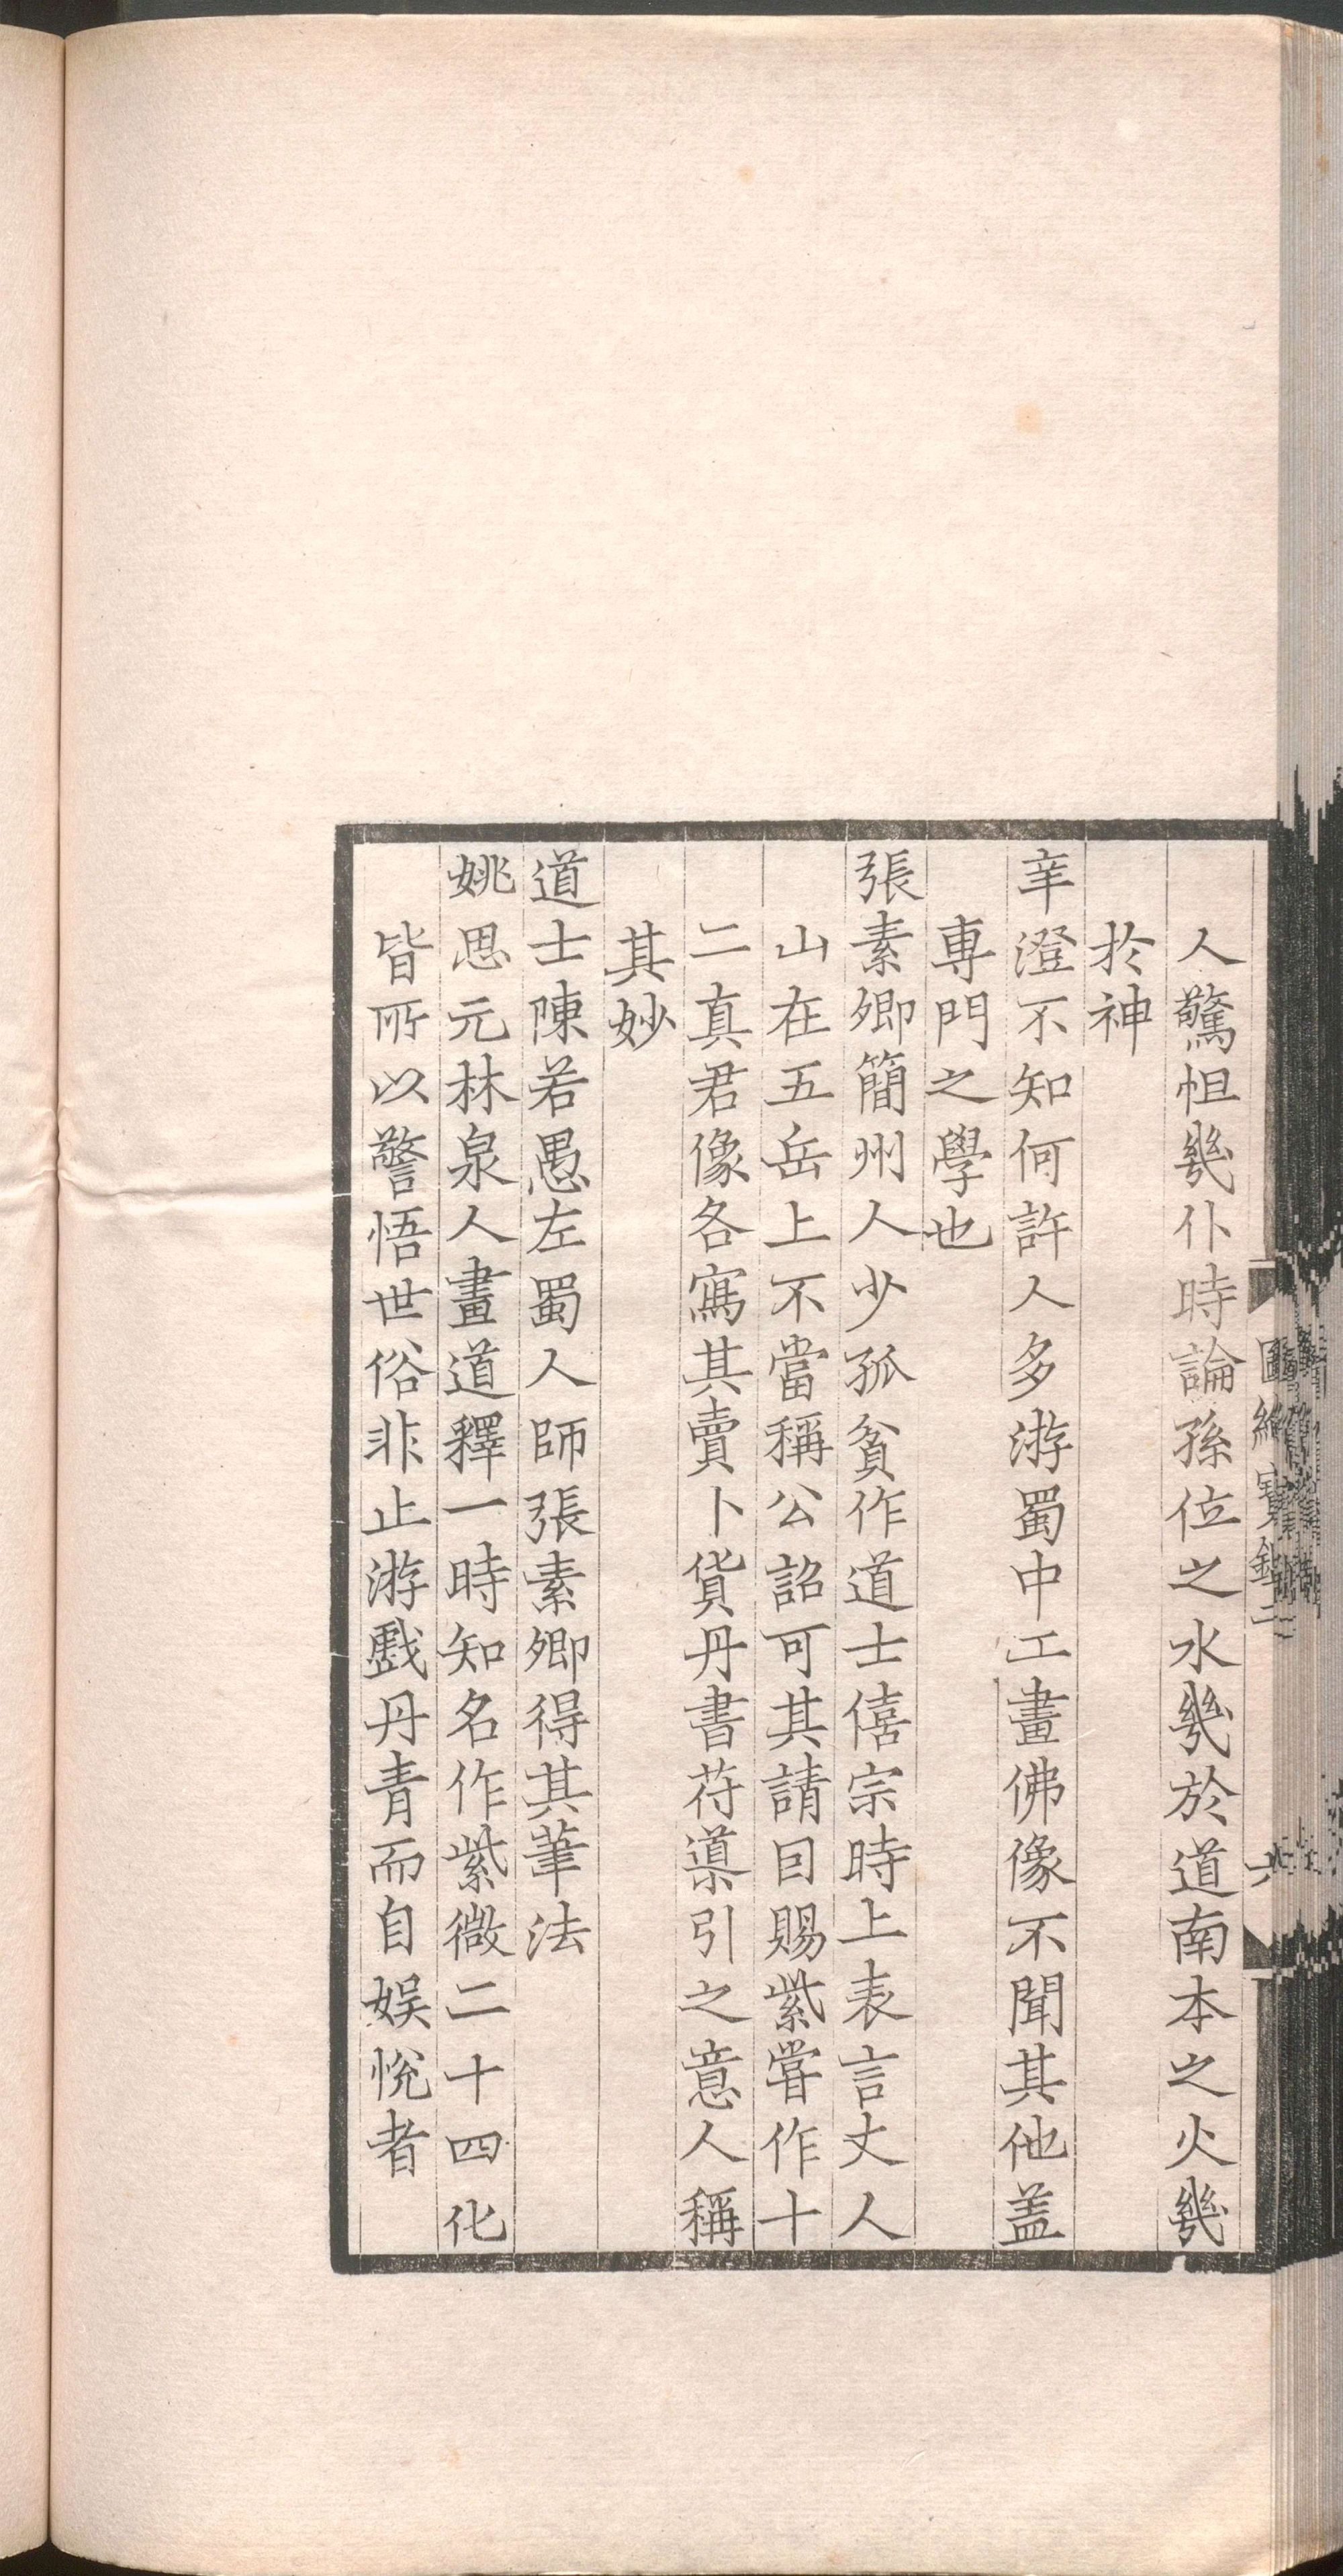 人驚怛幾仆時論孫位之水幾於道南本之火幾
於神
辛澄不知何許人多游蜀中工畫佛像不聞其他盖
専門之學也
張素卿簡州人少孤貧作道士僖宗時上表言丈人
山在五岳上不當稱公詔可其請因賜紫甞作十
二真君像各寫其賣卜貨丹書苻導引之意人稱
其妙
道士陳若愚左蜀人師張素卿得其筆法
姚思元林泉人畫道釋一時知名作紫微二十四化
皆所以警悟世俗非止游戲丹青而自娱悅者
圖繪寶鑑二
六